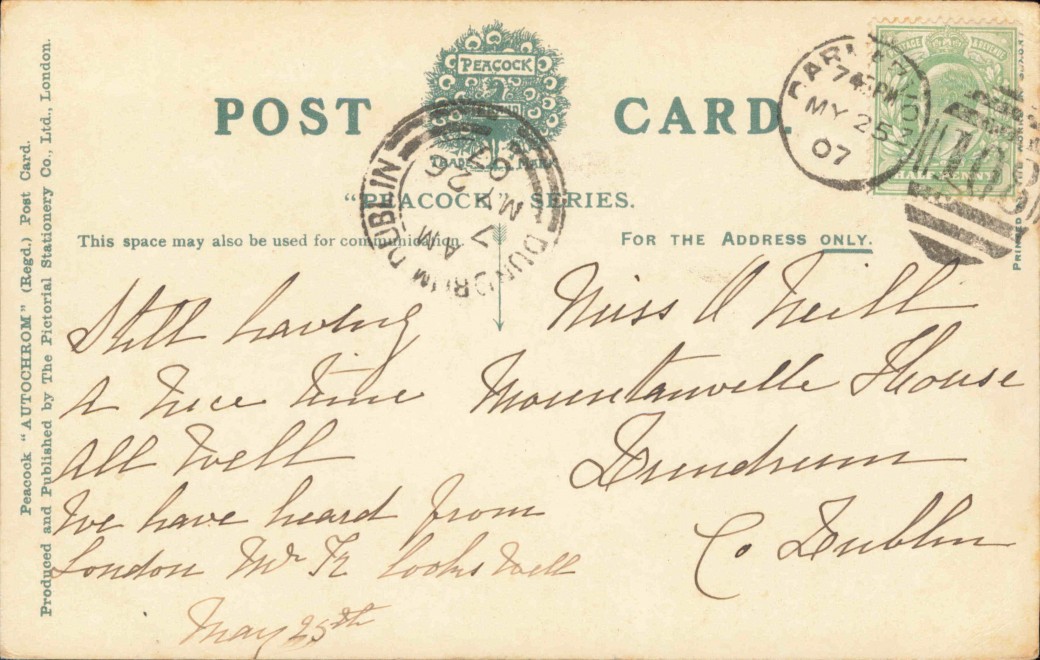 POST CARD.
PEACOCK
TRADE MARK
"PEACOCK" SERIES.
This space may also be used for communication.
FOR THE ADDRESS ONLY.
Peacock "AUTOCHROM" (Regd.) Post Card.
Produced and Published by The Pictorial Stationery Co., Ltd., London.
7 45 PM
MY 25
07
HALFPENNY
DUNDRUM DUBLIN
7 AM
MY 26
07
Still having
a nice time
All well
We have heard from
London Mr looks well
May 25th
Miss O Neill
Mountanville House
Dundrum
Co Dublin